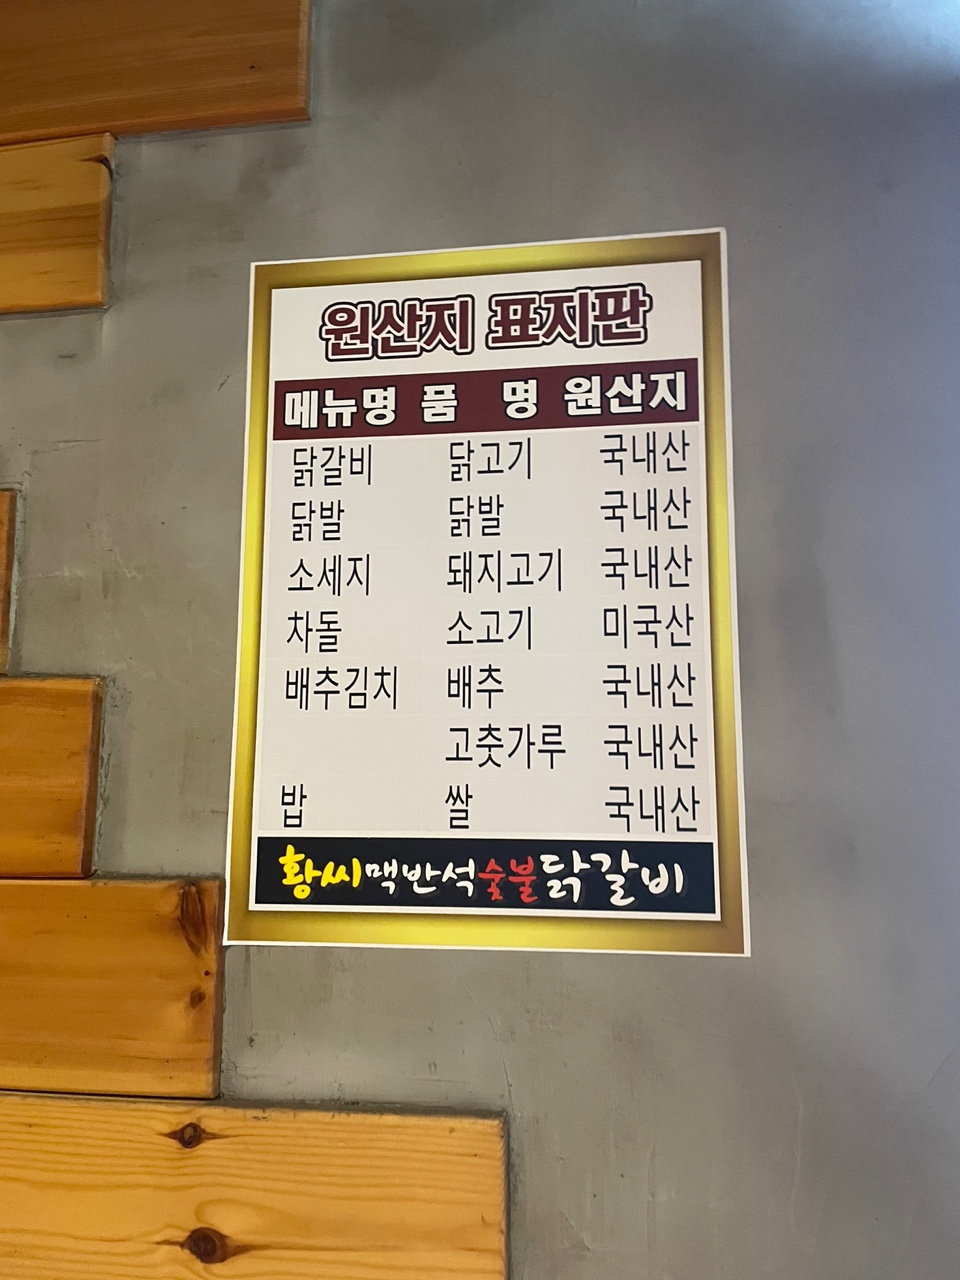 원산지 표지판
메뉴명 품 명 원산지
닭갈비 닭고기 국내산
닭발 닭발 국내산
소세지 돼지고기 국내산
차돌 소고기 미국산
배추김치 배추 국내산
고춧가루 국내산
밥 쌀 국내산
황씨맥반석숯불닭갈비